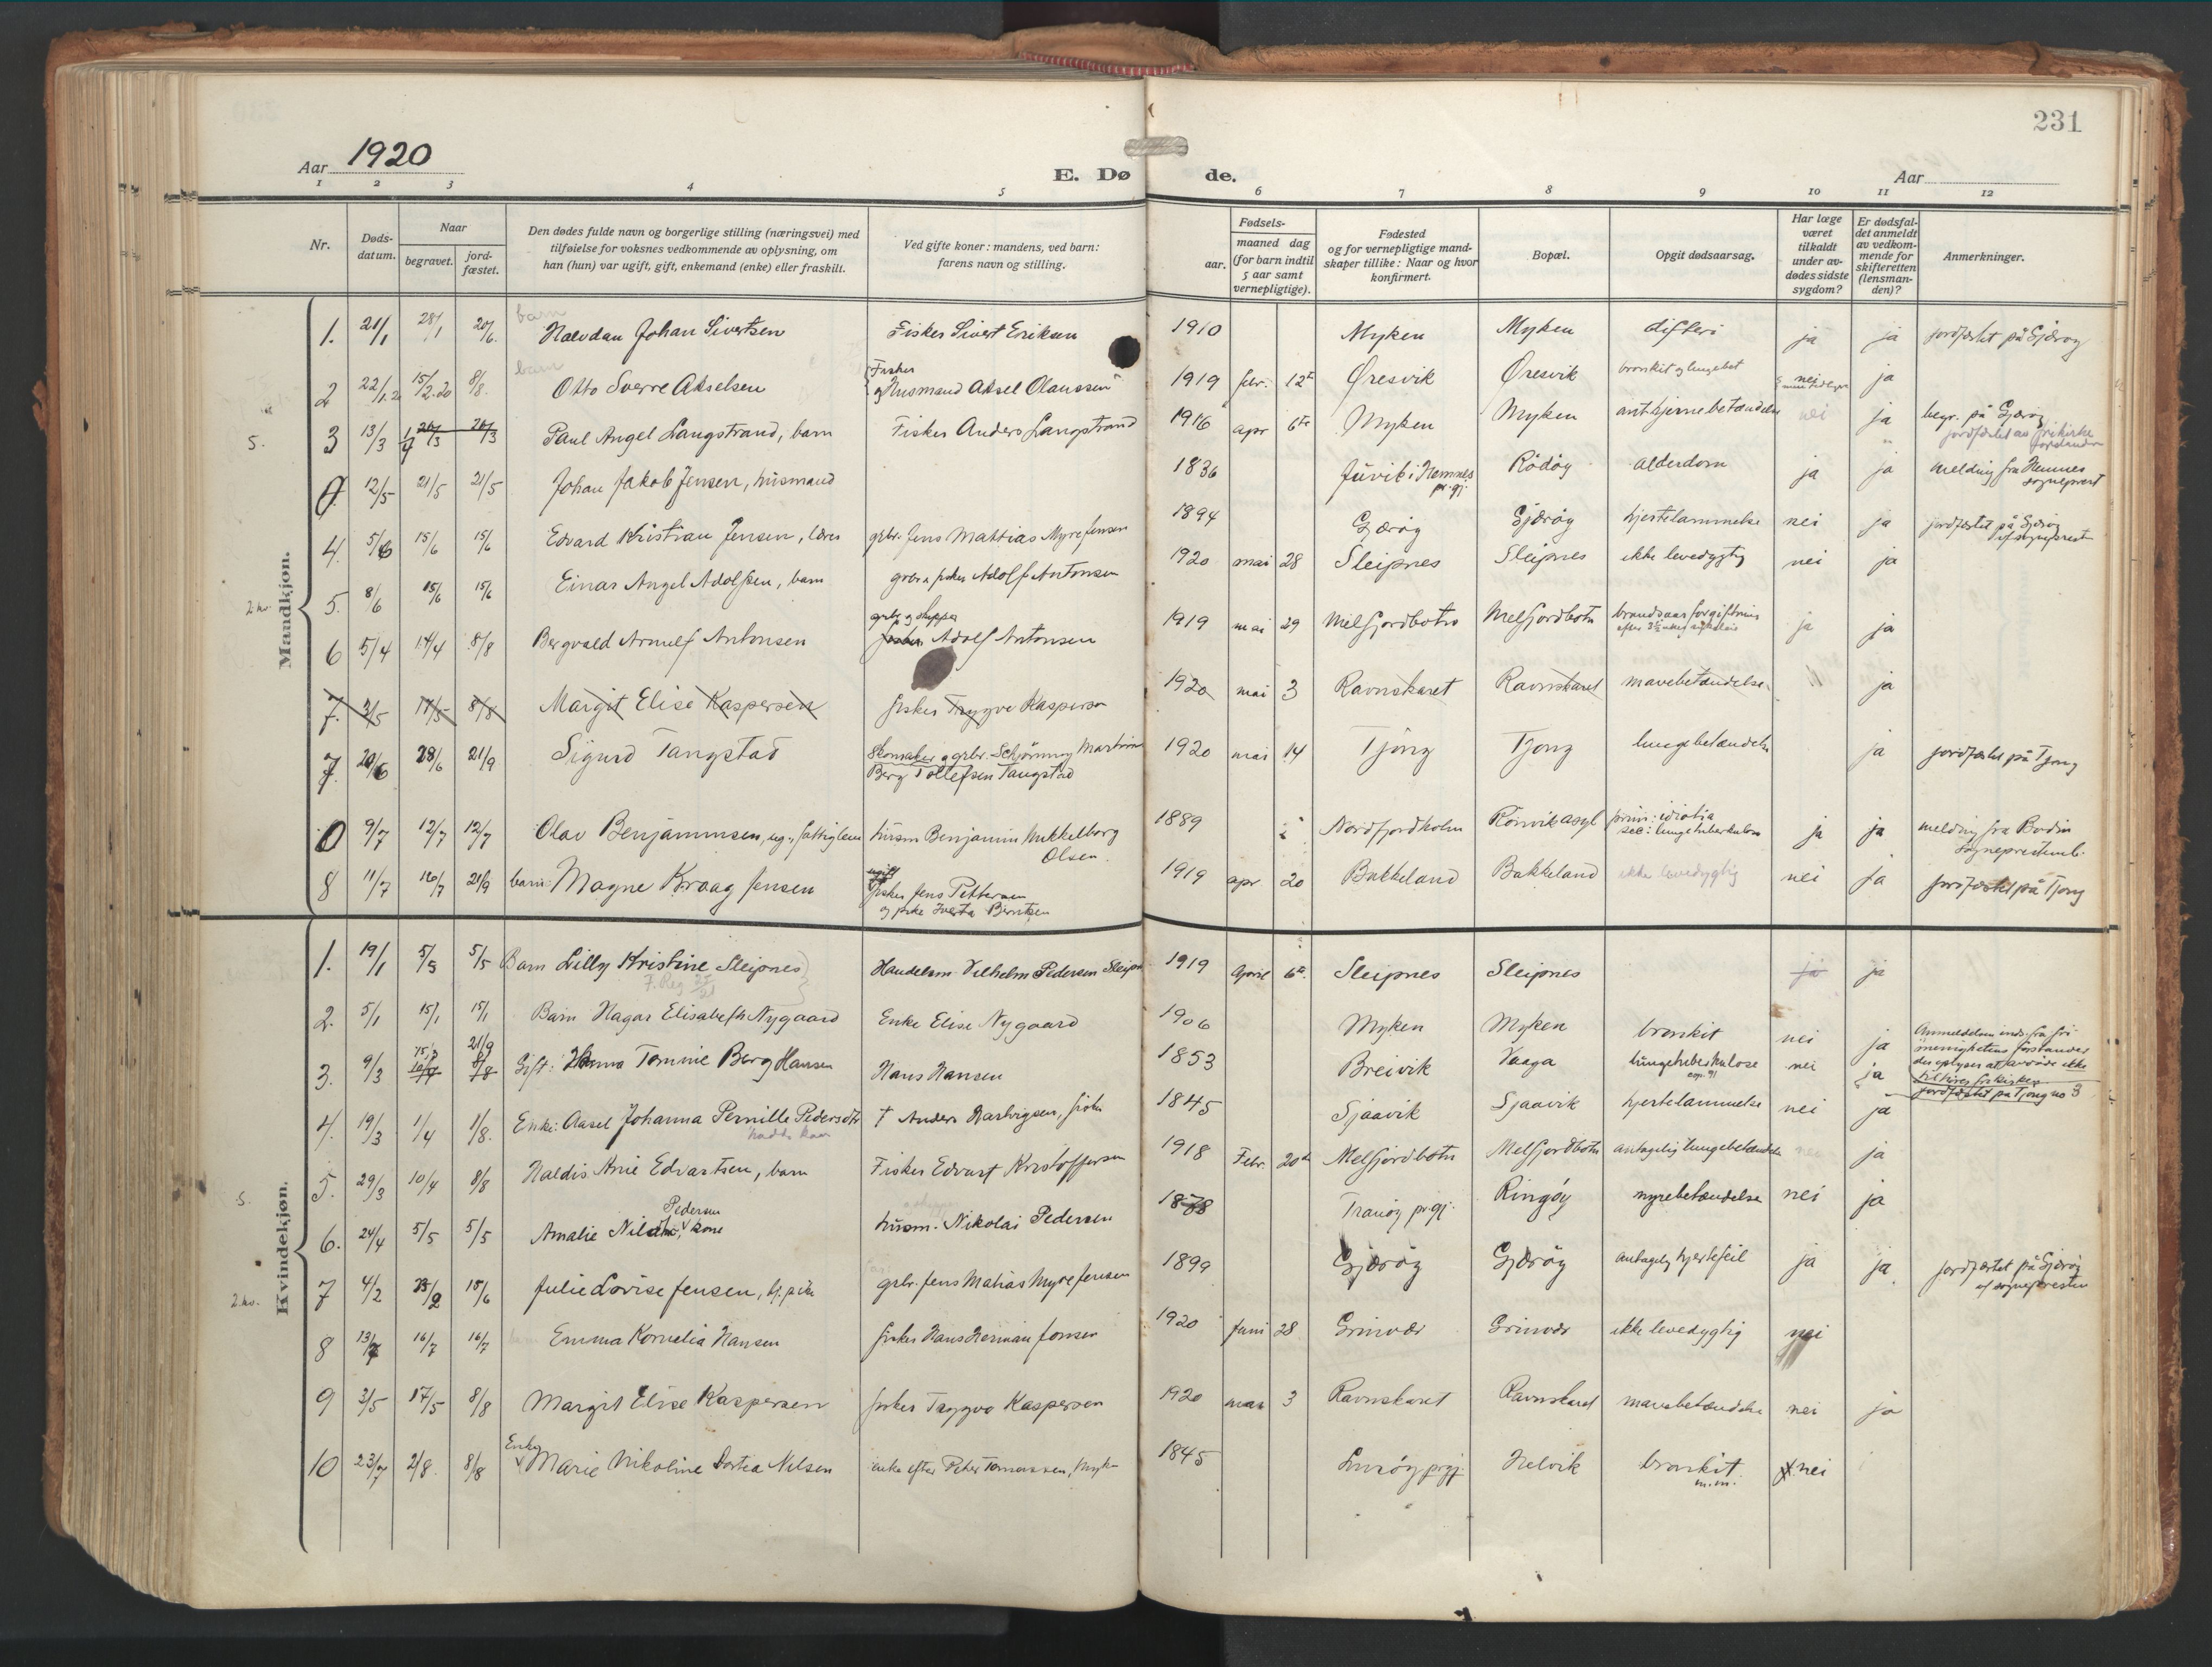 231
Aar 1920
E. Døde.
Aar
1 2 3 4 5 6 7 8 9 10 11 12
Nr.
Døds-datum.
Naar
begravet.
jord-fæstet.
Den dødes fulde navn og borgerlige stilling (næringsvei) med
tilføielse for voksnes vedkommende av oplysning, om
han (hun) var ugift, gift, enkemand (enke) eller fraskilt.
Ved gifte koner: mandens, ved barn:
farens navn og stilling.
Fødsels-
aar.
maaned dag
(for barn indtil
5 aar samt
vernepligtige).
Fødested
og for vernepligtige mand-
skaper tillike: Naar og hvor
konfirmert.
Bopæl.
Opgit dødsaarsag.
Har læge
været
tilkaldt
under av-
dødes sidste
sygdom?
Er dødsfal-
det anmeldt
av vedkom-
mende for
skifteretten
(lensman-
den)?
Anmerkninger.
Mandkjøn.
barn
1. 21/1 28/1 20/6. Halvdan Johan Sivertsen Fisker Sivert Eriksen 1910 Myken Myken difteri ja ja jordfæstet på Gjærøy
barn
2 22/1.2 15/2.20 8/8. Otto Sverre Akselsen Fisker og Husmand Aksel Olaussen 1919 febr. 12te Øresvik Øresvik bronkit og lungebet nei ja
S. 3 13/3 1/4 Paul Angel Langstrand, barn Fisker Anders Langstrand 1916 apr 6te Myken Myken ant. hjernebetændelse nei ja begr. på Gjærøy
jordfæstet av frikirke forstander
0. 12/5 21/5 21/5 Johan Jakob Jensen, husmand 1836 Juvik i Hemnes pr.gj. Rödøy alderdom ja ja melding fra Hemnes sogneprest
4. 5/6 15/6 15/6 Edvard Kristian Jensen, lærer grbr. Jens Mattias Myre Jensen 1894 Gjærøy Gjærøy hjertelammelse nei ja jordfæstet på Gjærøy af sogneprest
2.hv. 5. 8/6 15/6 15/6 Einar Angel Adolfsen, barn grbr. fisker Adolf Antonsen 1920 mai 28 Sleipnes Sleipnes ikke levedygtig nei ja
6 5/4 14/4 8/8 Bergvald Arnulf Antonsen grbr. og skipper Adolf Antonsen 1919 mai 29 Melfjordbotn Melfjordbotn ja ja
7. 3/5 17/5 8/8 Margit Elise Kaspersen fisker Trygve Kaspersen 1920 mai 3 Ravnskaret Ravnskaret mavebetændelse ja
7. 20/6 28/6 21/9 Sigurd Tangstad Skomaker og grbr. Schjönning Martin Berg Tollefsen Tangstad 1920 mai 14 Tjong Tjong lungebetændelse ja jordfæstet på Tjong
0 9/7 12/7 12/7 Olav Benjaminsen, ug., fattiglem husm Benjamin Mikkelborg Olsen. 1889 Nordfjordholm Rönvik asyl prim: idiotia sec: lungetuberkulose ja ja melding fra Bodin sogneprestemb.
8 11/7 16/7 21/9 barn: Magne Kraag Jensen fisker Jens Pettersen og pike Iverta Berntsen 1919 apr 20 Bakkeland Bakkeland ikke levedygtig nei ja jordfæstet på Tjong
Kvindekjøn.
1. 19/1 5/5 5/5 Barn Lilly Kristine Sleipnes Handelsm. Vilhelm Pedersen Sleipn 1919 April 6te. Sleipnes Sleipnes ja ja
2. 5/1 15/1 15/1 Barn Hagar Elisabeth Nygaard Enke Elise Nygaard 1906 Myken Myken bronkit nei ja
3. 9/3 21/9 Gift: Hanna Tomine Berg Hansen Hans Hansen 1853 Breivik Vaaga lungetuberkulose nei ja
Anmeldelsen inds. fra fri-
menighetens forstander
der oplyser at avdøde ikke
tilhører frikirken
jordfæstet på Tjong no 3
4. 19/3 1/4 1/8. Enke: Aasel Johanna Pernille Pedersdtr † Anders Hartvigsen, fisker 1845 Sjaavik Sjaavik hjertelammelse nei ja
S. 5. 29/3 10/4 8/8 Haldis Arnie Edvartsen, barn Fisker Edvart Kristoffersen 1918 Febr. 20de Melfjordbotn Melfjordbotn antagelig lungebetændelse ja
6. 24/4 5/5 5/5 Amalie Pedersen kone husm. Nikolai Pedersen 1878 Tranøy pr.gj. Ringøy nyrebetændelse nei ja
2.hv. 7 4/2 15/6 Julie Lovise Jensen grbr. Jens Matias Myre Jensen 1899 Gjærøy Gjærøy antagelig hjertefeil ja ja jordfæstet på Gjærøy af sognepresten
8 13/7 16/7 16/7 Emma Kornelia Hansen fisker Hans Herman Jonsen 1920 Juni 28 Grinvær Grinvær ikke levedygtig nei
9 3/5 17/5 8/8 Margit Elise Kaspersen fisker Trygve Kaspersen 1920 mai 3 Ravnskaret Ravnskaret mavebetændelse nei ja
10 23/7 2/8. 8/8 Enke Marie Nikoline Dortea Nilsen enke efter Peter Tomassen, Myken 1845 Lurøy prgj. Helvik bronkit m.m. nei